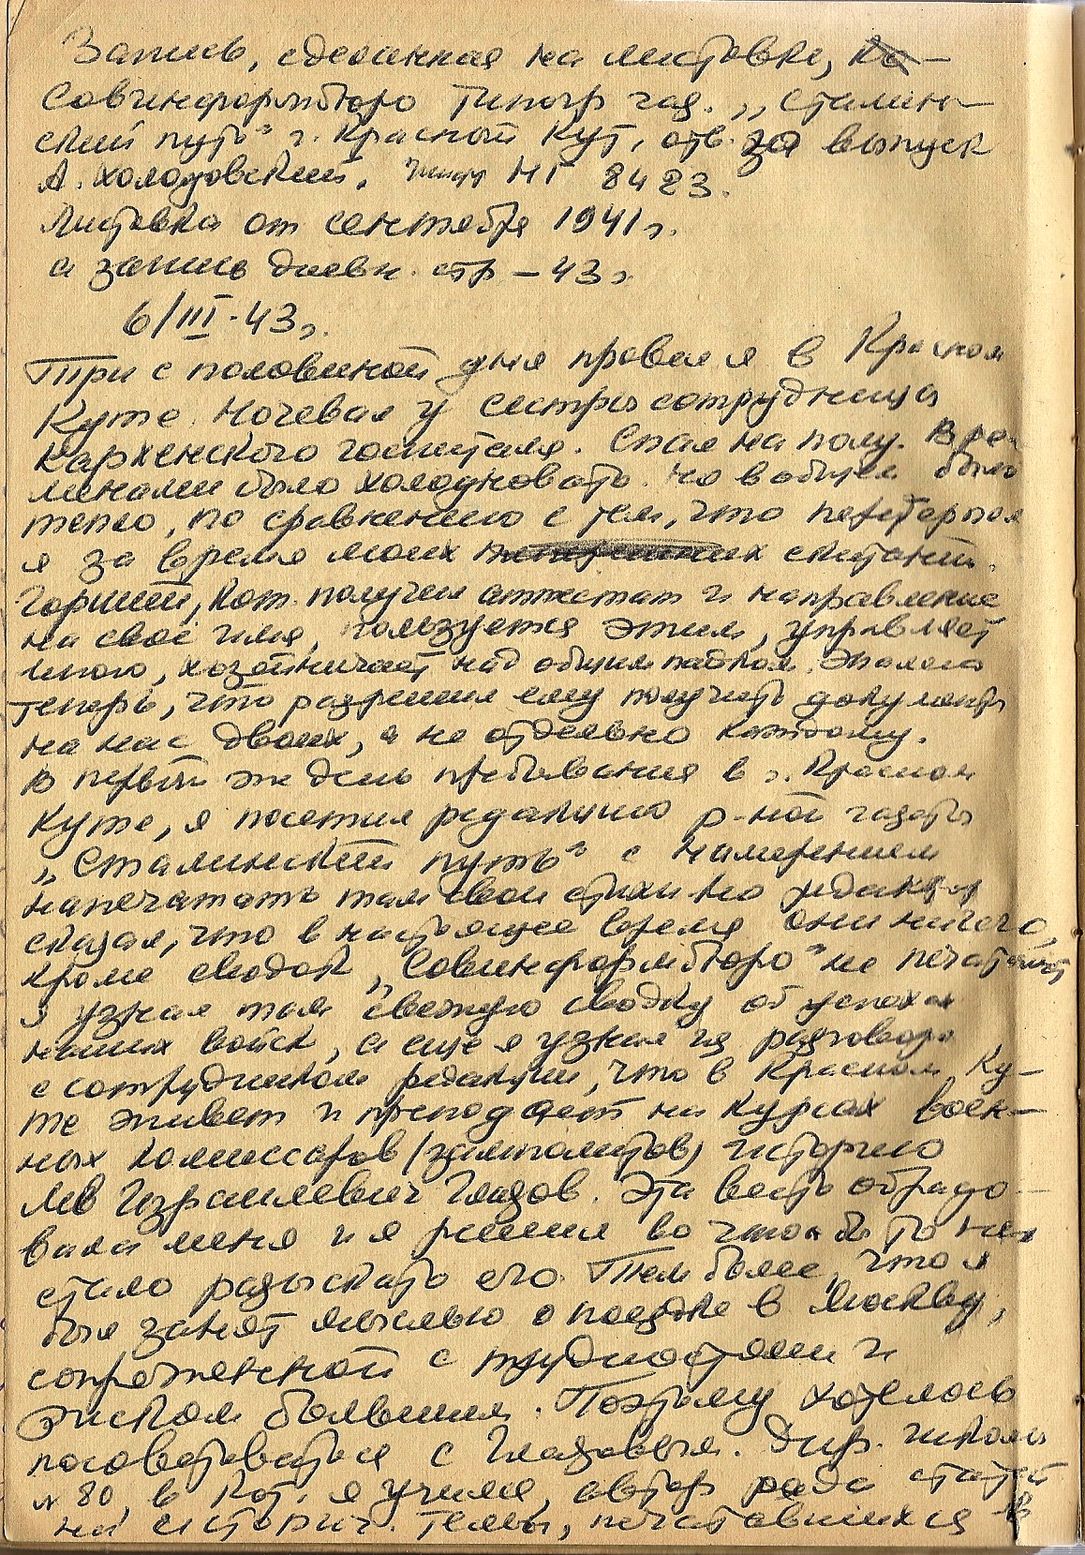 Запись, сделанная на листовке,
Совинформбюро типогр газ. „Сталин-
ский путь" г. Красный Кут, отв. за выпуск
А. Холодовский, НГ 8423.
Листовка от сентября 1941 г.
а запись дневн. стр – 43 г.
6/III-43 г.
Три с половиной дня провел я в Красном
Куте. Ночевал у сестры сотрудницы
госпиталя. Спал на полу. Вре-
менами было холодновато. Но в общем было
тепло, по сравнению с тем, что перетерпел
я за время моих скитаний.
Горший, кот. получил аттестат и направление
на свое имя, пользуется этим, управляет
мною, хозяйничает над общим пайком.
теперь, что разрешил ему получить документы
на нас двоих, а не отдельно каждому.
В первый же день пребывания в г. Красном
Куте, я посетил редакцию р-ной газеты
„Сталинский путь" с намерением
напечатать там свои стихи но редактор
сказал, что в настоящее время они ничего,
кроме сводок „Совинформбюро" не печатают
я узнал там свежую сводку об успехах
наших войск, а еще я узнал из разговора
с сотрудником редакции, что в Красном Ку-
те живет и преподает на курсах воен-
ных комиссаров (замполитов) историю
Лев Израилевич Глазов. Эта весть обрадо-
вала меня и я решил во что бы то ни
стало разыскать его. Тем более, что я
был занят мыслью о поездке в Москву,
сопряженной с трудностями и
риском большим. Поэтому хотелось
посоветоваться с Глазовым. Дир. школы
№ 80, в кот. я учился, автор ряда статей
на историч. темы, печатавшихся в